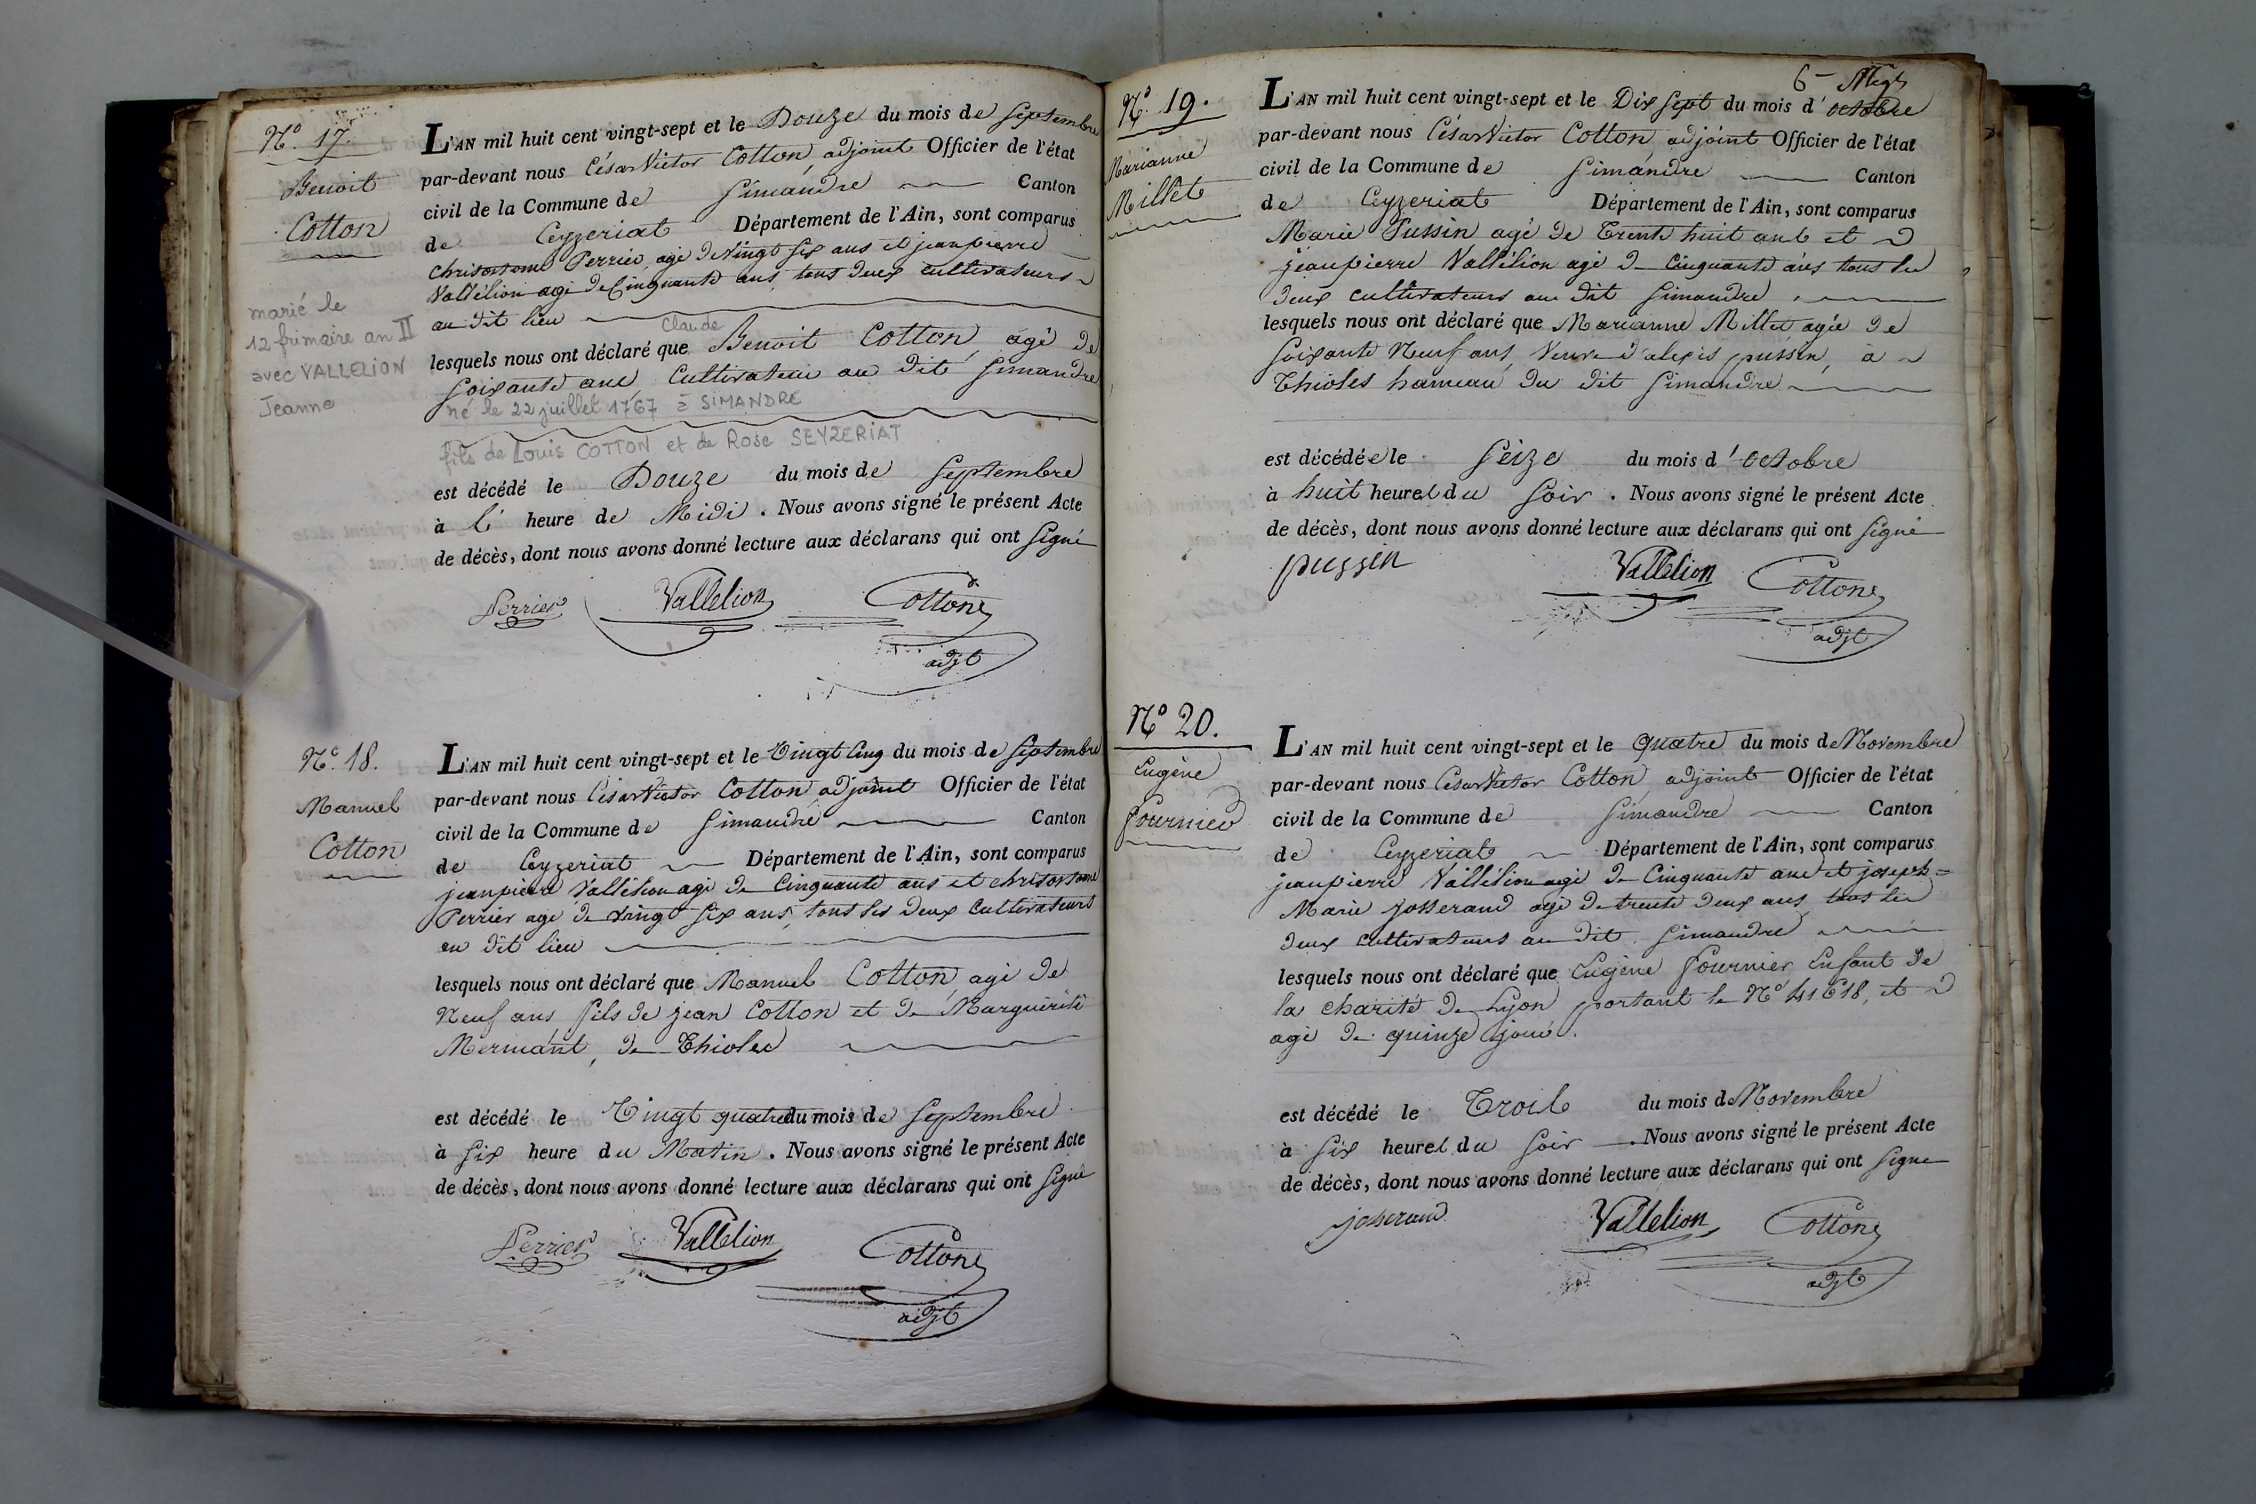 N.º 17.
Benoit
Cotton
marié le
12 frimaire an II
avec VALLELION
Jeanne
L'AN mil huit cent vingt-sept et le Douze du mois de Septembre
par-devant nous César Victor Cotton adjoint Officier de l'état
civil de la Commune de Simandre Canton
de Ceyzeriat Département de l'Ain, sont comparus
Chrisostome Perrier agé de Vingt six ans et jean pierre
Vallélion agé de Cinquante ans, tous deux cultivateurs
au dit lieu
Claude
lesquels nous ont déclaré que Benoit Cotton, agé de
Soixante ans, Cultivateur au dit Simandre
né le 22 juillet 1767 à SIMANDRE
fils de Louis COTTON et de Rose SEYZERIAT
est décédé le Douze du mois de Septembre
à l' heure de Midi. Nous avons signé le présent Acte
de décès, dont nous avons donné lecture aux déclarans qui ont Signé
Perrier Vallelion Cotton
adjt
N.º 18.
Manuel
Cotton
L'AN mil huit cent vingt-sept et le Vingt Cinq du mois de Septembre
par-devant nous César Victor Cotton adjoint Officier de l'état
civil de la Commune de Simandre Canton
de Ceyzeriat Département de l'Ain, sont comparus
jean pierre Vallélion agé de Cinquante ans et chrisostome
Perrier agé de Vingt Six ans, tous les deux Cultivateurs
au dit lieu
lesquels nous ont déclaré que Manuel Cotton, agé de
Neuf ans fils de jean Cotton et de Marguerite
Mermant, de Thioles
est décédé le Vingt quatre du mois de Septembre
à Six heure du Matin. Nous avons signé le présent Acte
de décès, dont nous avons donné lecture aux déclarans qui ont Signé
Perrier Vallelion Cotton
adjt
6
N.º 19.
Marianne
Millet
L'AN mil huit cent vingt-sept et le Dix Sept du mois d'octobre
par-devant nous César Victor Cotton, adjoint Officier de l'état
civil de la Commune de Simandre Canton
de Ceyzeriat Département de l'Ain, sont comparus
Marie Pussin agé de Trente huit ans et
jean pierre Vallélion agé de Cinquante ans tous les
deux cultivateurs au dit Simandre
lesquels nous ont déclaré que Marianne Millet agée de
Soixante Neuf ans, Veuve d'alexis pussin, à
Thioles hameau du dit Simandre
est décédée le Seize du mois d'octobre
à huit heures du Soir. Nous avons signé le présent Acte
de décès, dont nous avons donné lecture aux déclarans qui ont Signé
pussin Vallelion Cotton
adjt
N.º 20.
Eugène
Fournier
L'AN mil huit cent vingt-sept et le Quatre du mois de Novembre
par-devant nous César Victor Cotton, adjoint Officier de l'état
civil de la Commune de Simandre Canton
de Ceyzeriat Département de l'Ain, sont comparus
jean pierre Vallélion agé de Cinquante ans et joseph=
Marie Josserand agé de trente deux ans, tous les
deux cultivateurs au dit Simandre
lesquels nous ont déclaré que Eugène Fournier Enfant de
la charité de Lyon portant le Nº 41618, et
agé de quinze jours.
est décédé le Trois du mois de Novembre
à Six heures du Soir. Nous avons signé le présent Acte
de décès, dont nous avons donné lecture aux déclarans qui ont Signé
josserand Vallelion Cotton
adjt